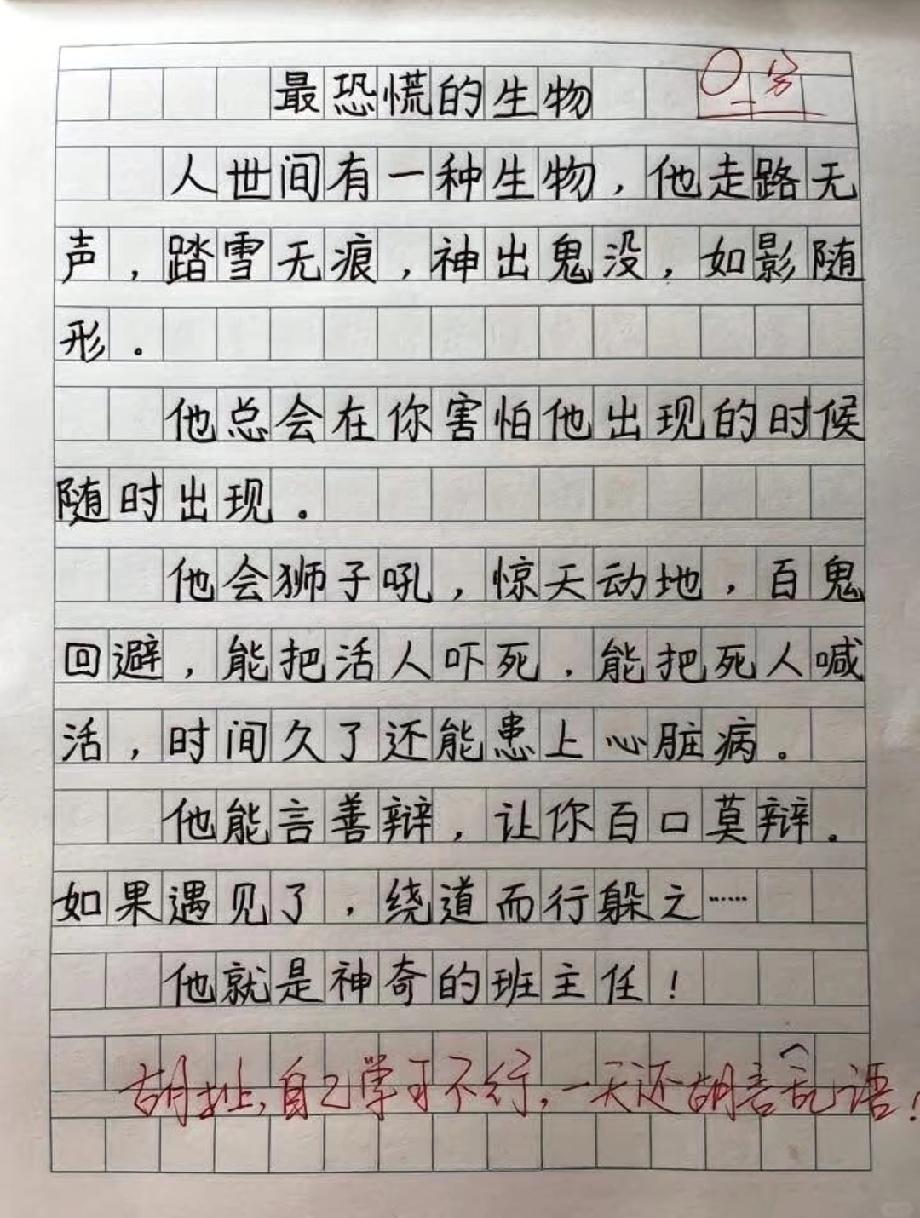 最恐慌的生物 0分
人世间有一种生物，他走路无
声，踏雪无痕，神出鬼没，如影随
形.
他总会在你害怕他出现的时候
随时出现。
他会狮子吼，惊天动地，百鬼
回避，能把活人吓死.能把死人喊
活，时间久了还能患上心脏病。
他能言善辩，让你百口莫辩.
如果遇见了，绕道而行躲之……
他就是神奇的班主任！
胡扯,自己学习不行,一天还胡言乱语!